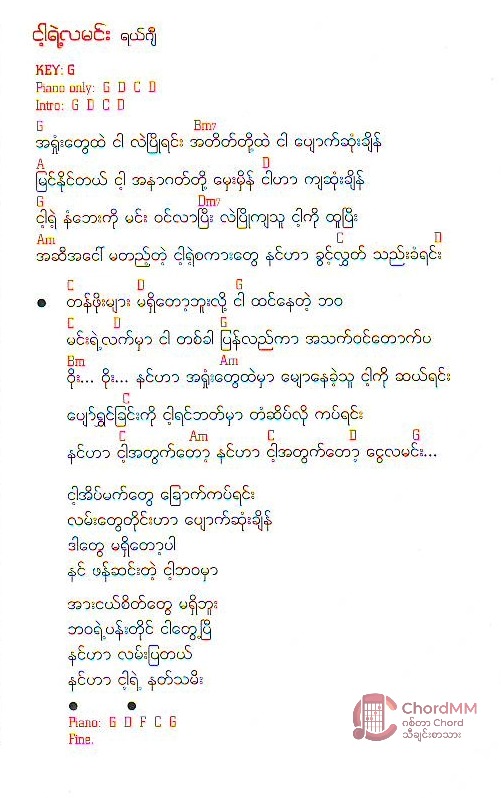 ငါ့ရဲ့လမင်း ရယ်ဂျီ
KEY: G
Piano only: G D C D
Intro: G D C D
G Bm7
အရှုံးတွေထဲ ငါ လဲပြိုရင်း အတိတ်တို့ထဲ ငါ ပျောက်ဆုံးချိန်
A D
မြင်နိုင်တယ် ငါ့ အနာဂတ်တို့ မှေးမှိန် ငါဟာ ကျဆုံးချိန်
G Dm7
ငါ့ရဲ့ နံဘေးကို မင်း ဝင်လာပြီး လဲပြိုကျသူ ငါ့ကို ထူပြီး
Am C D
အဆီအငေါ် မတည့်တဲ့ ငါ့ရဲ့စကားတွေ နင်ဟာ ခွင့်လွှတ် သည်းခံရင်း
C D G
● တန်ဖိုးများ မရှိတော့ဘူးလို့ ငါ ထင်နေတဲ့ ဘဝ
C D G
မင်းရဲ့လက်မှာ ငါ တစ်ခါ ပြန်လည်ကာ အသက်ဝင်တောက်ပ
Bm Am
ဝိုး... ဝိုး... နင်ဟာ အရှုံးတွေထဲမှာ မျောနေခဲ့သူ ငါ့ကို ဆယ်ရင်း
C
ပျော်ရွှင်ခြင်းကို ငါ့ရင်ဘတ်မှာ တံဆိပ်လို ကပ်ရင်း
C Am C D G
နင်ဟာ ငါ့အတွက်တော့ နင်ဟာ ငါ့အတွက်တော့ ငွေလမင်း...
ငါ့အိပ်မက်တွေ ခြောက်ကပ်ရင်း
လမ်းတွေတိုင်းဟာ ပျောက်ဆုံးချိန်
ဒါတွေ မရှိတော့ပါ
နင် ဖန်ဆင်းတဲ့ ငါ့ဘဝမှာ
အားငယ်စိတ်တွေ မရှိဘူး
ဘဝရဲ့ပန်းတိုင် ငါတွေ့ပြီ
နင်ဟာ လမ်းပြတယ်
နင်ဟာ ငါ့ရဲ့ နတ်သမီး
● ●
Piano: G D F C G
Fine.
ChordMM
ဂစ်တာ Chord
သီချင်းစာသား